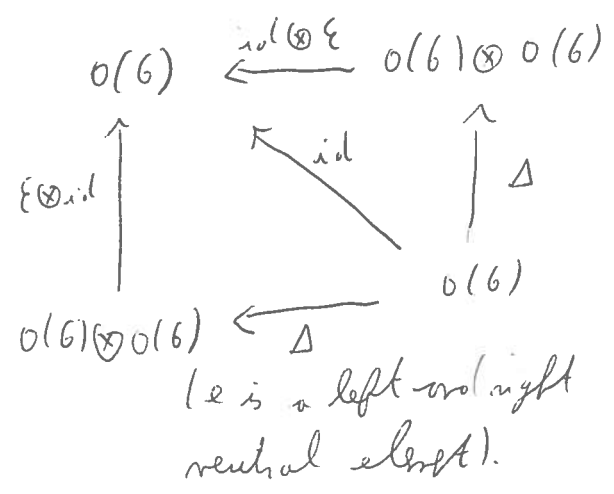 id⊗ε
O(G) O(G)⊗O(G)
id
ε⊗id Δ
O(G)
O(G)⊗O(G) Δ
(e is a left and right
neutral element).